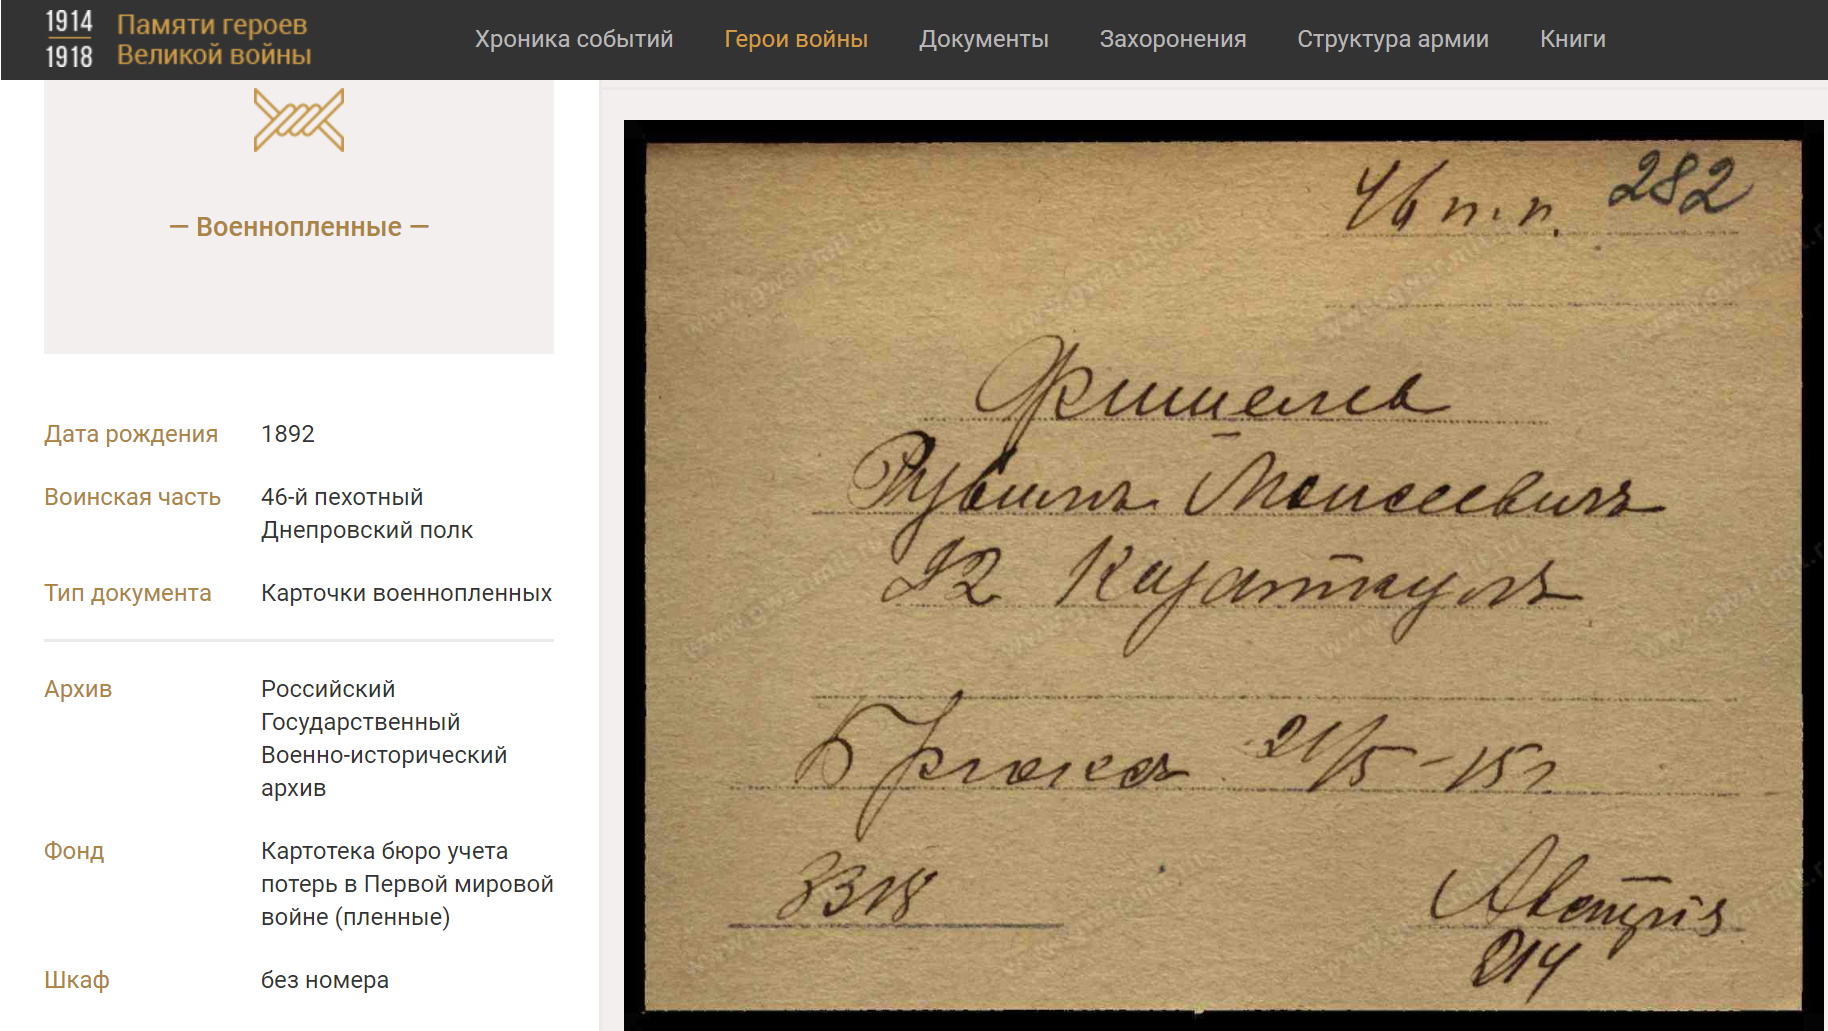 1914
1918
Памяти героев
Великой войны
Хроника событий
Герои войны
Документы
Захоронения
Структура армии
Книги
— Военнопленные —
Дата рождения 1892
Воинская часть 46-й пехотный
Днепровский полк
Тип документа Карточки военнопленных
Архив Российский
Государственный
Военно-исторический
архив
Фонд Картотека бюро учета
потерь в Первой мировой
войне (пленные)
Шкаф без номера
46 п.п. 282
Фишель
Рувинъ Моисеевичъ
92
21/5-15г
3318
Австрія
214
www.gwar.mil.ru